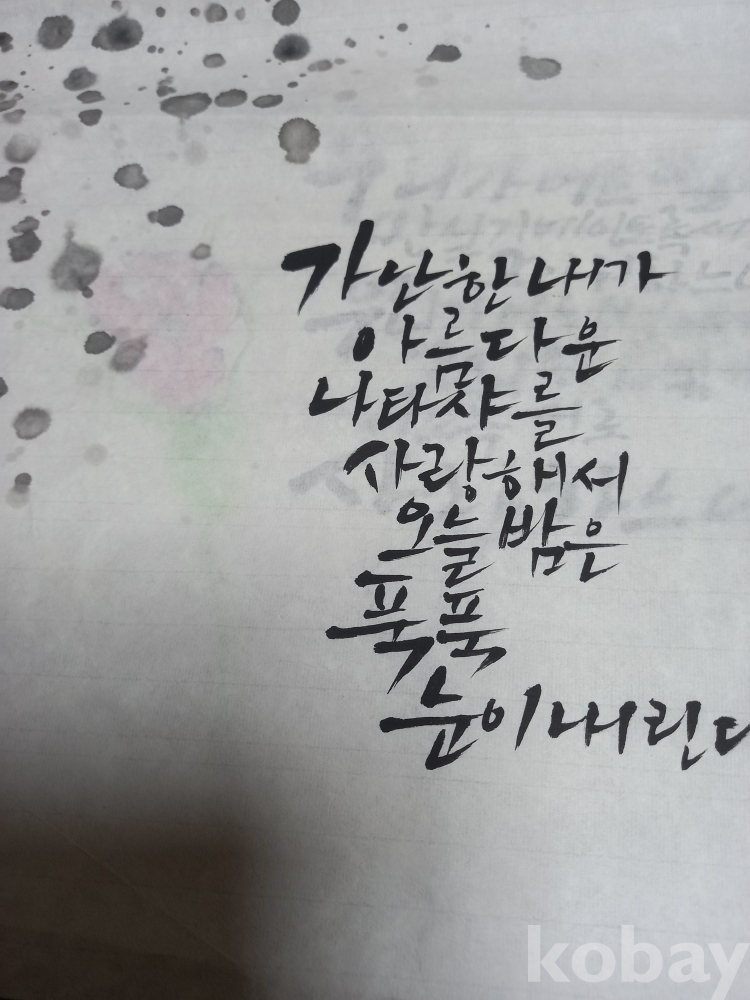 가난한 내가
아름다운
나타샤를
사랑해서
오늘 밤은
푹푹
눈이 내린다
kobay